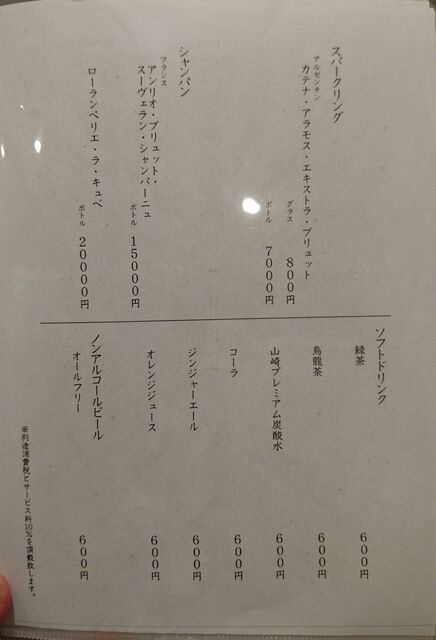 スパークリング
アルゼンチン
カテナ・アラモス・エキストラ・ブリュット
グラス 800円
ボトル 7000円
シャンパン
フランス
アンリオ・ブリュット・
スーヴェラン・シャンパーニュ
ボトル 15000円
ローランペリエ・ラ・キュベ
ボトル 20000円
ソフトドリンク
緑茶 600円
烏龍茶 600円
山崎プレミアム炭酸水 600円
コーラ 600円
ジンジャーエール 600円
オレンジジュース 600円
ノンアルコールビール
オールフリー 600円
※別途消費税とサービス料10%を頂戴致します。